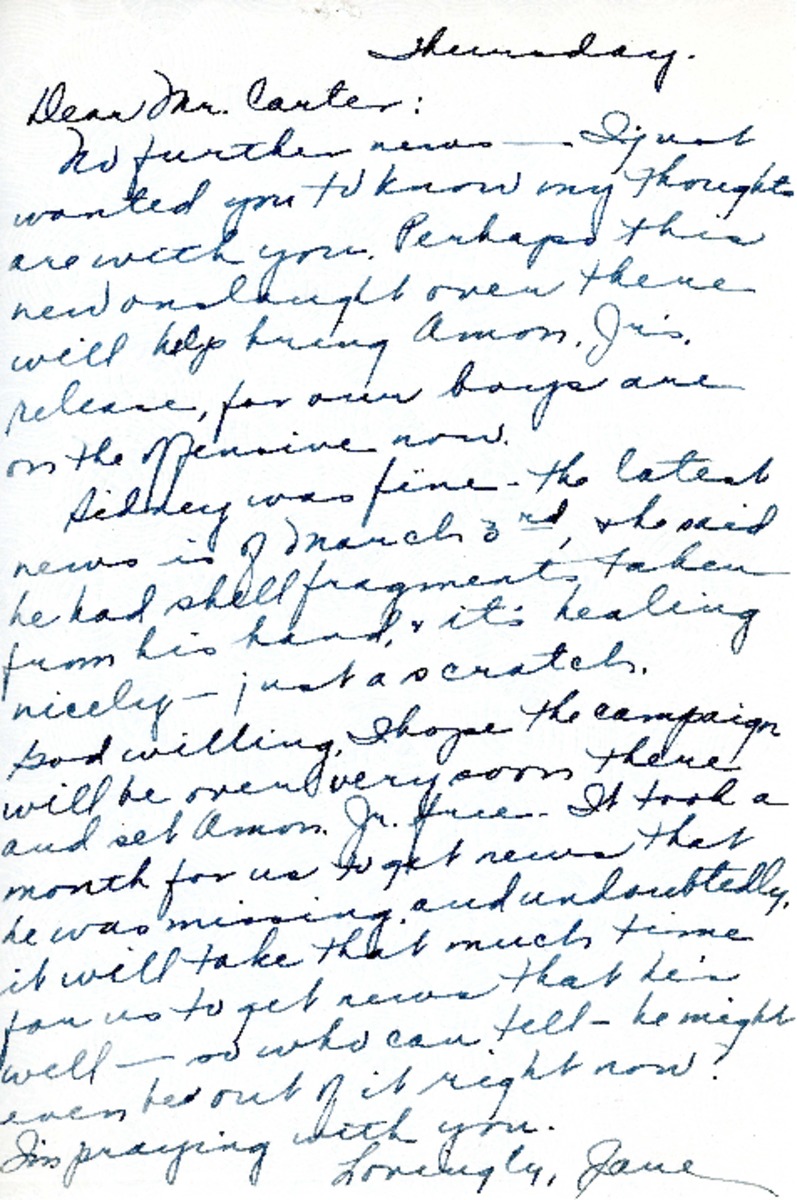 Thursday.
Dear Mr. Carter:
No further news — I just
wanted you to know my thoughts
are with you. Perhaps this
new onslaught over there
will help bring Amon, Jr's.
release, for our boys are
on the offensive now.
Sidney was fine - the latest
news is of March 3rd, & he said
he had shell fragments taken
from his hand, & it's healing
nicely — just a scratch.
God willing, I hope the campaign
will be over very soon there
and set Amon. Jr. free. It took a
month for us to get news that
he was missing, and undoubtedly,
it will take that much time
for us to get news that he's
well — so who can tell — he might
even be out of it right now!
I'm praying with you.
Lovingly, Jane